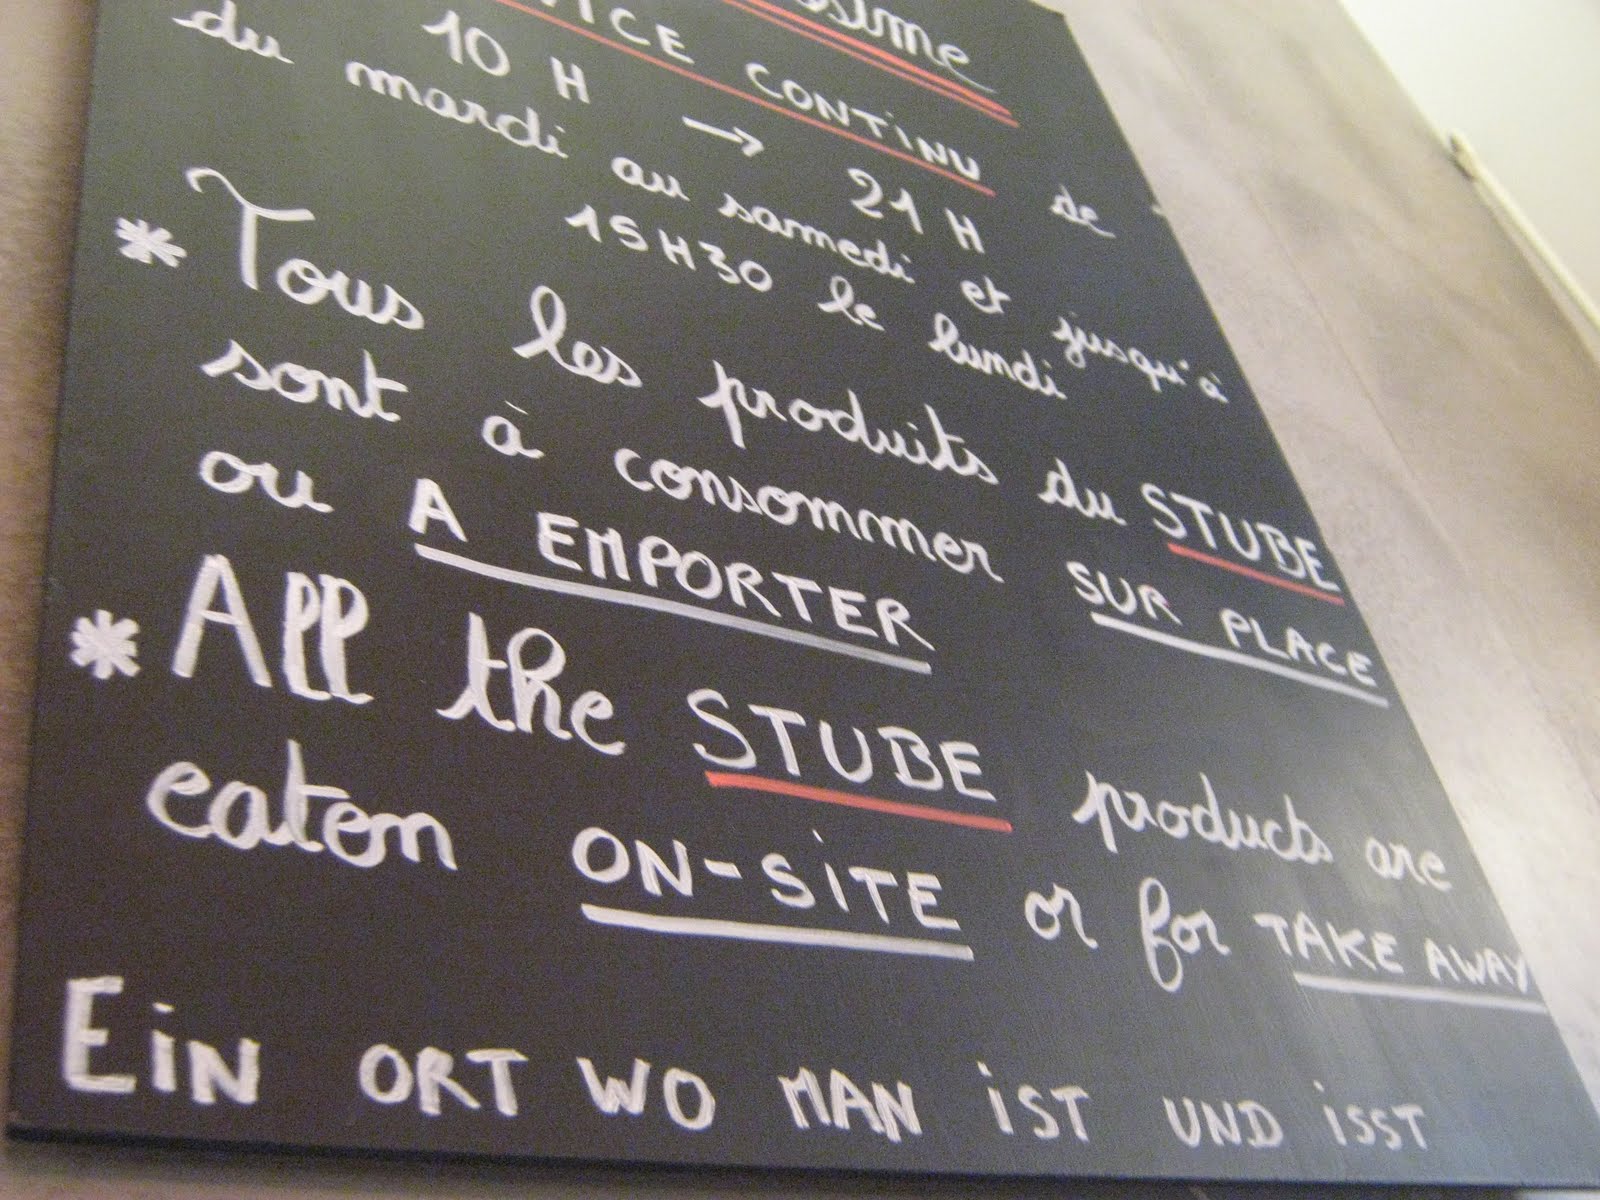 CONTINU de
10 H → 21 H
du mardi au samedi et jusqu'à
15H30 le lundi
* Tous les produits du STUBE
sont à consommer SUR PLACE
ou A EMPORTER
* All the STUBE products are
eaton ON-SITE or for TAKE AWAY
EiN ORT WO MAN iST UND iSST